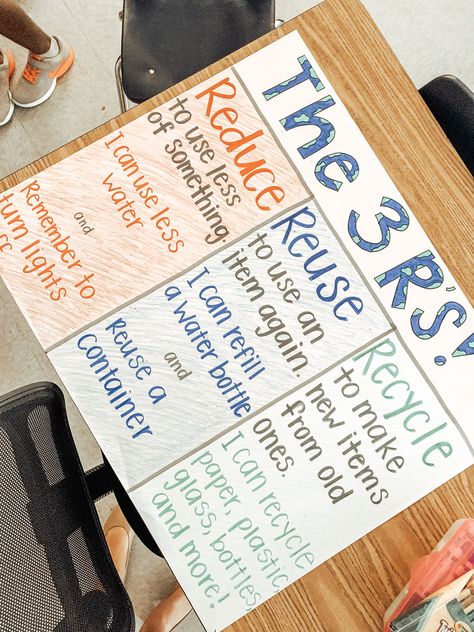 The 3 R's!
Reduce
to use less
of something.
I can use less
water
and
Remember to
turn lights
Reuse
to use an
item again.
I can refill
a water bottle
and
Reuse a
container
Recycle
to make
new items
from old
ones.
I can recycle
paper, plastic,
glass, bottles,
and more!